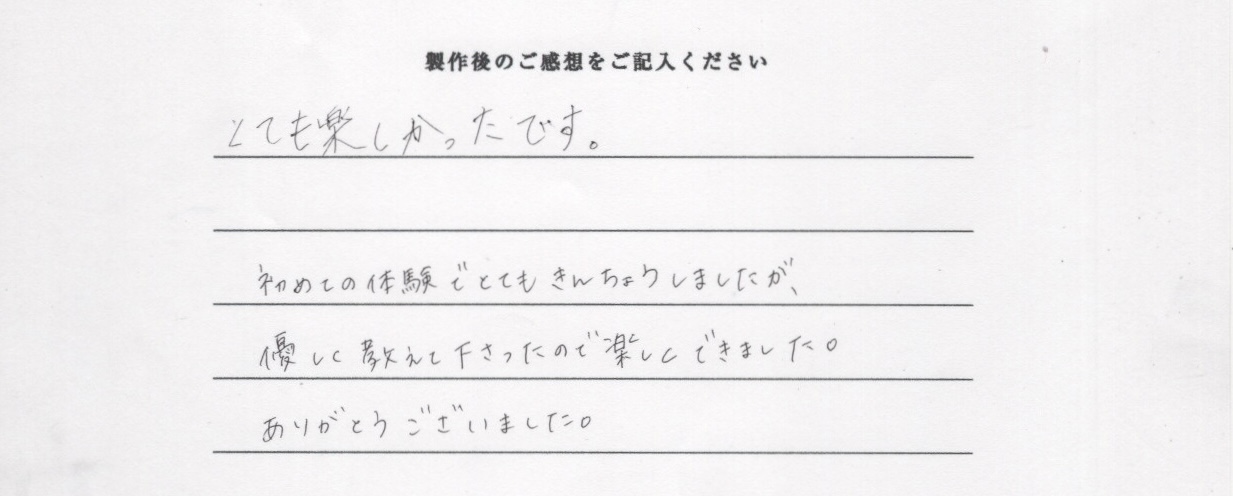 製作後のご感想をご記入ください
とても楽しかったです。
初めての体験でとてもきんちょうしましたが、
優しく教えて下さったので楽しくできました。
ありがとうございました。